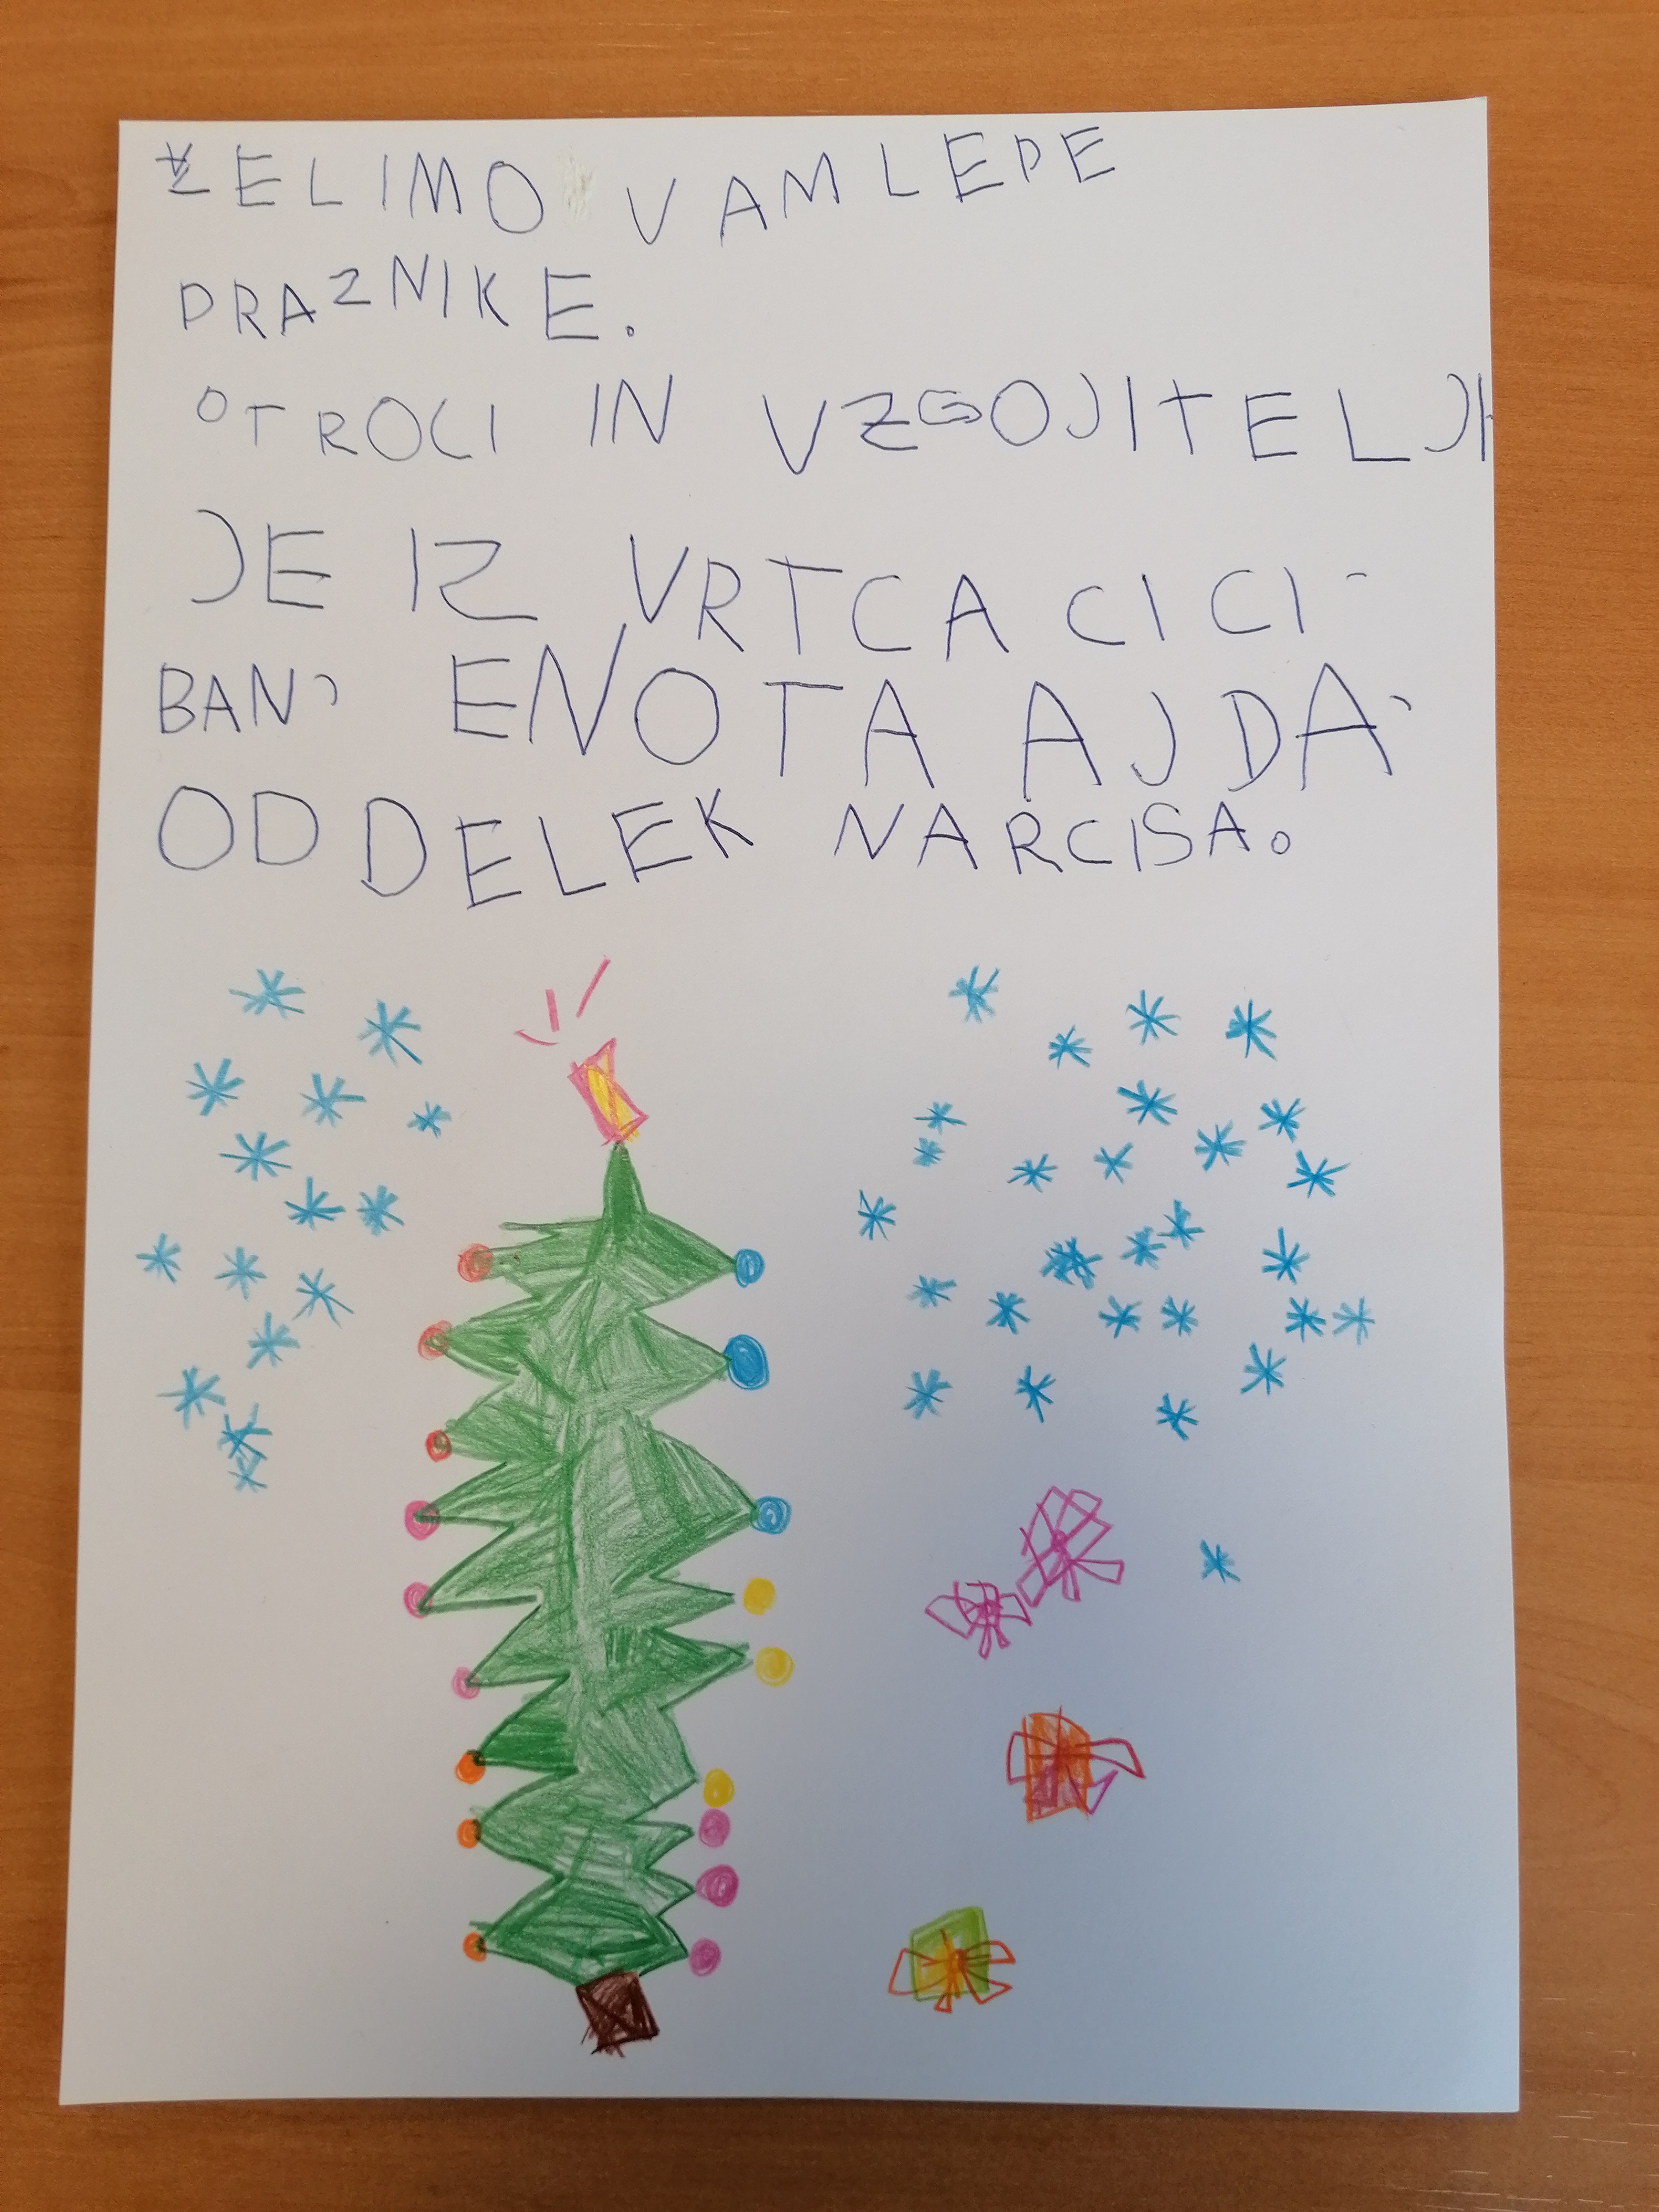 ŽELIMO VAM LEPE
PRAZNIKE.
OTROCI IN VZGOJITELJI
JE IZ VRTCA CICI-
BAN, ENOTA AJDA,
ODDELEK NARCISA.